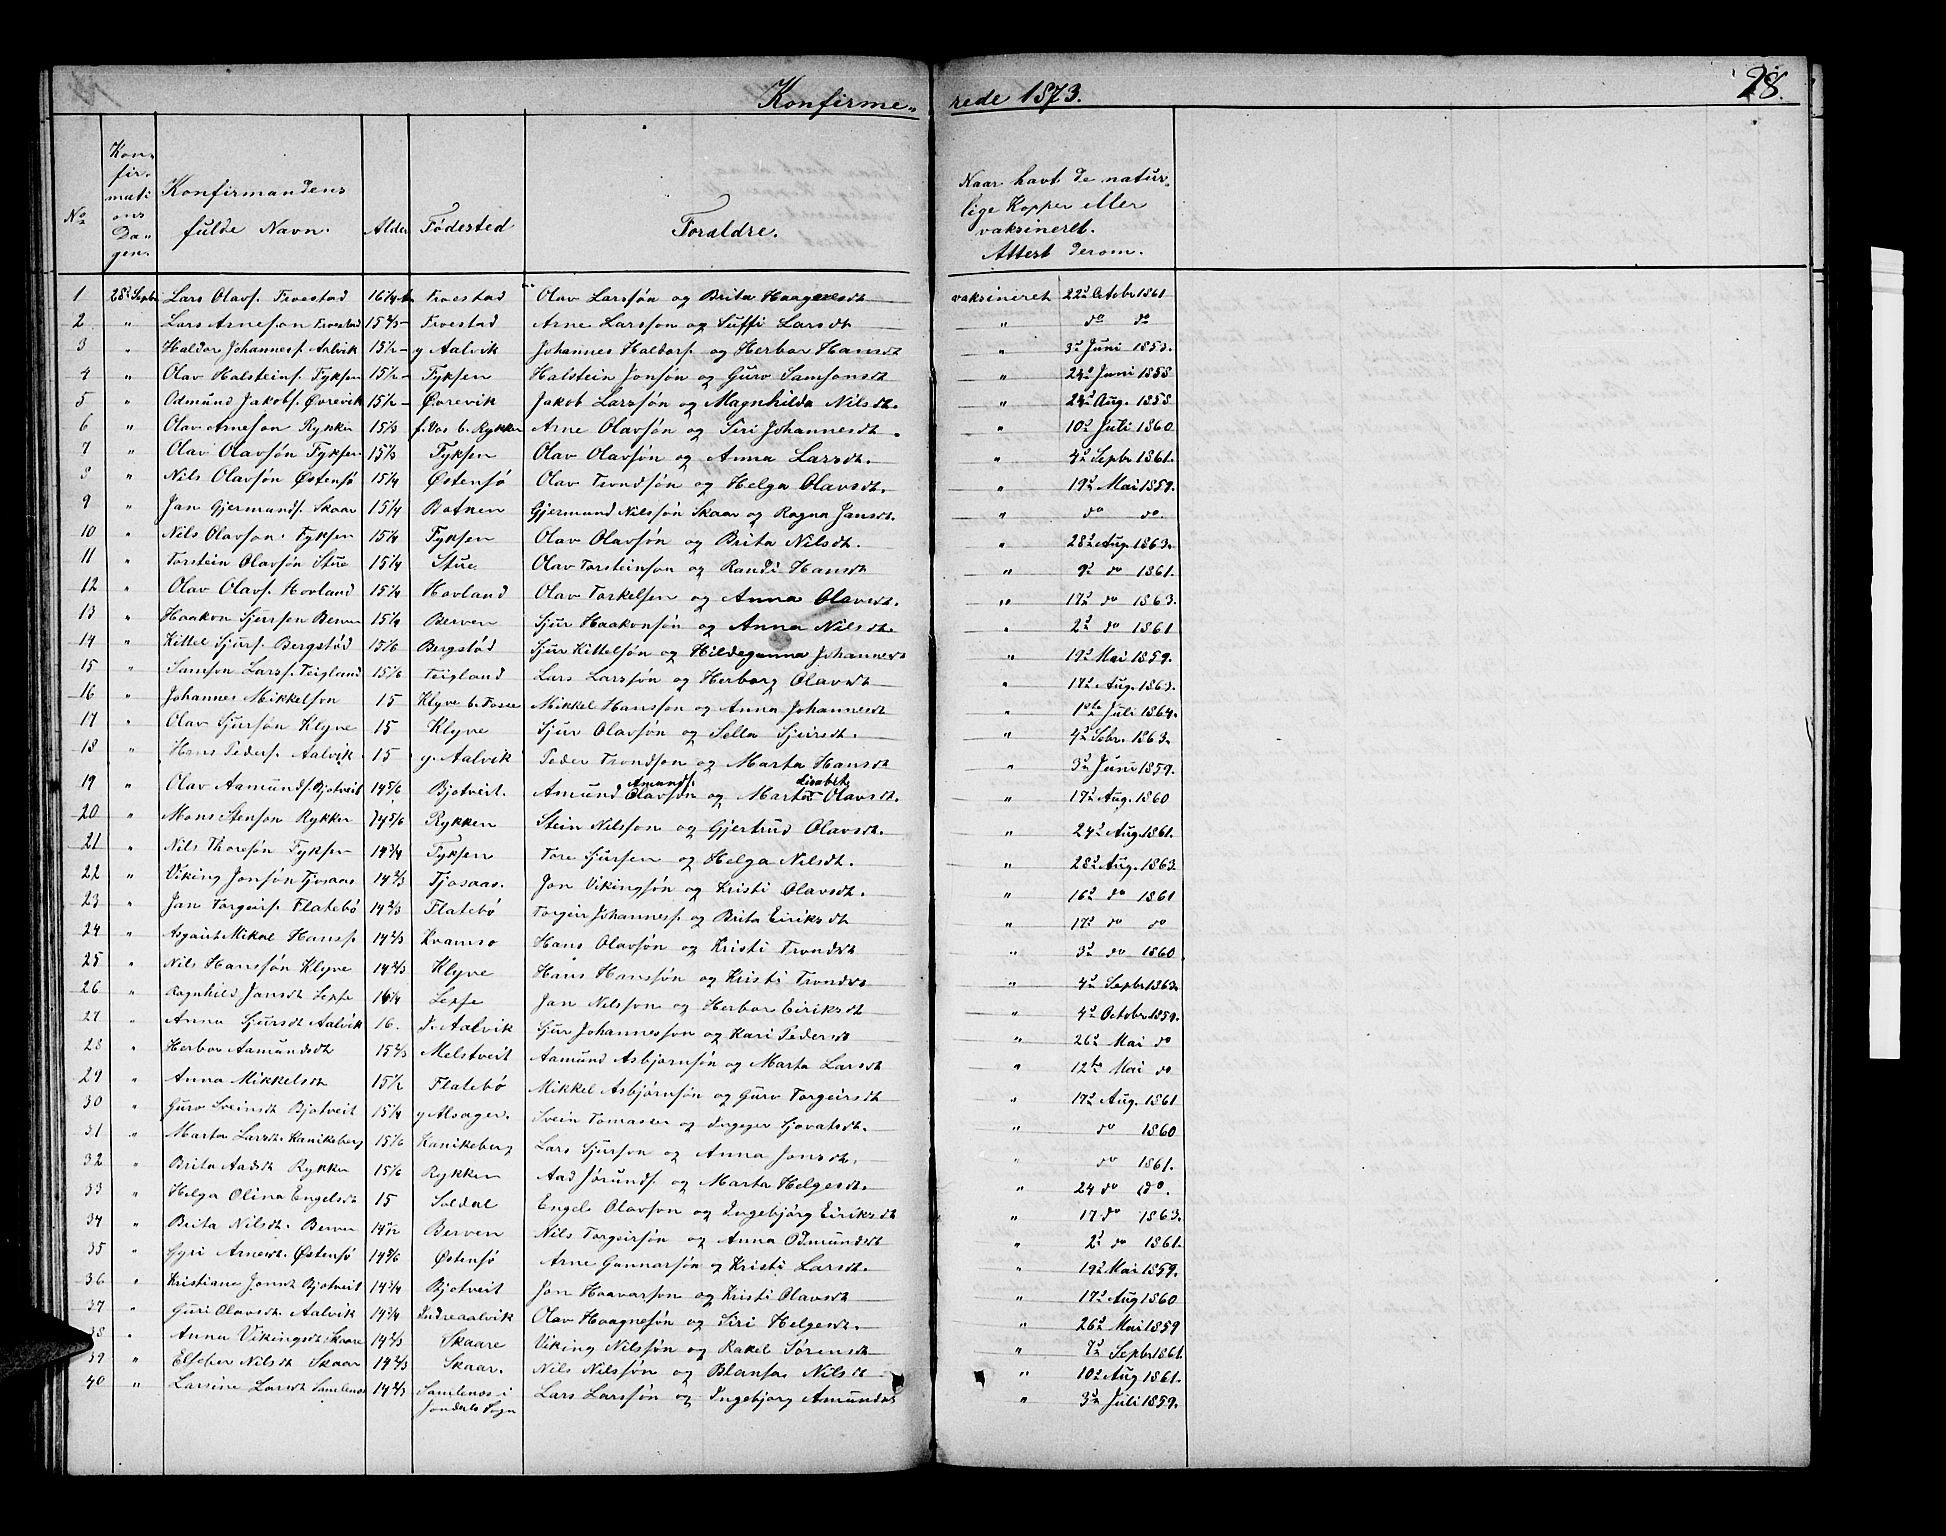 Konfirmerede 1873. 28.
No Konfirmationsdagen. Konfirmandens fulde Navn. Alder Fødested Foræeldre. Naar havt de naturlige Kopper eller vaksineret. Attest derom.
1 28d Septbr Lars Olavs. Tvestad 16 1/4 Tvestad Olav Larssøn og Brita Haagensdt vaksineret 22d Octobr 1861
2 " Lars Arneson Tvestad 15 2/3 Tvestad Arne Larsson og Larsdt " do do
3 " Haldor Johannesf. Aalvik 15 1/2 y Aalvik Johannes Haldorf. og Herbor Hansdt " 3d Juni 1853.
4 " Olav Halsteinf. Fyksen 15 1/2 Fyksen Halstein Jonsøn og Guro Samsonsdt " 24d Juni 1858
5 " Odmund Jakobf. Øvrevik 15 1/2 Øvrevik Jakob Larssøn og Magnhilda Nilsdt. " 24d Aug. 1858
6 " Olav Arneson Rykke 15 1/3 f. Vos b. Rykken Arne Olavsøn og Siri Johannesdt. " 10d Juli 1860.
7 " Olav Olavsøn Fyksen 15 1/3 Fyksen Olav Olavsøn og Anna Larsdt. " 4d Septbr 1861.
8 " Nils Olavsøn Østensø 15 1/4 Østensø Olav Trondsøn og Helga Olavsdt. " 19d Mai 1859.
9 " Jan Gjermundf. Skaar 15 1/4 Botnen Gjermund Nilssøn Skaar og Ragna Jansdt. " do do.
10 " Nils Olavson. Fyksen 15 1/4 Fyksen Olav Olavsøn og Brita Nilsdt. " 28d Aug. 1863.
11 " Torstein Olavsøn Stue 15 1/4 Stue Olav Torsteinson og Randi Hansdt " 9d do 1861.
12 " Olav Olavf. Hovland 15 1/4 Hovland Olav Torkelsen og Anna Olavsdt. " 17d do 1863.
13 " Haakon Sjurson Berven 15 1/4 Berven Sjur Haakonsøn og Anna Nilsdt. " 2d do 1861
14 " Kittel Sjurf. Bergstød 15 1/6 Bergstød Sjur Kittelsøn og Hildegunna Johannesdt " 19d Mai 1859.
15 " Samson Larsf. Teigland 15 1/6 Teigland Lars Larssøn og Herborg Olavsdt " 17d Aug. 1863.
16 " Johannes Mikkelson 15 Klyve b. Mikkel Hansson og Anna Johannesdt " 1ste Juli 1864.
17 " Olav Sjursøn Klyve 15 Klyve Sjur Olavsøn og Sella Sjursdt. " 4d Sebr. 1863.
18 " Hans Pedersf. Aalvik 15 y. Aalvik Peder Trondson og Marta Hansdt " 3d Juni 1859.
19 " Olav Aamundf. Bjotveit 14 5/6 Bjotveit. Amund Olavsøn Amundf. og Marta Olavsdt. " 17d Aug. 1860
20 " Mons Stenson Rykken 14 5/6 Rykken Stein Nilsson og Gjertrud Olavsdt. " 24d Aug. 1861.
21 " Nils Thoresøn Fyksen 14 3/4 Fyksen Tore Sjursen og Helga Nilsdt. " 28d Aug. 1863.
22 " Viking Jonsøn Tjosaas 14 2/3 Tjosaas. Jon Vikingsøn og Kristi Olavsdt. " 16d do 1861
23 " Jan Torgeirf. Flatebø 14 2/3 Flatebø Torgeir Johannesf. og Brita Eiriksdt " 17d do do
24 " Asgaut Mikal Hansf. 14 2/3 Kvamsø Hans Olavsøn og Kristi Trondsdt " 3d do 1860
25 " Nils Hanssøn Klyve 14 2/3 Klyve Hans Hanssøn og Kristi Trondsdt " 4d Septbr 1863.
26 " Ragnhild Jansdt Sepse 16 1/4 Sepse Jan Nilsson og Herbor Eiriksdt " 4d October 1859.
27 " Anna Sjursdt Aalvik 16. I. Aalvik Sjur Johannesson og Kari Pedersdt " 26d Mai do
28 " Herbor Aamundsdt 15 2/3 Melstveit Aamund Asbjørnsøn og Marta Larsdt " 12te Mai do
29 " Anna Mikkelsdt 15 1/2 Flatebø Mikkel Asbjørnsøn og Guro Torgeirsdt " 17d Aug. 1861
30 " Guro Sveinsdt Bjotveit 15 1/4 y Alsager. Svein og Sjovatsdt. " do 1860
31 " Marta Larsdt Kanikeberg 15 1/6 Kanikeberg Lars Sjurson og Anna Jonsdt. " do 1861.
32 " Brita Aadsdt Rykken 15 1/6 Rykken Aad Jørundf. og Marta Helgesdt. " 24 do do.
33 " Helga Olina Engelsdt 15 Soldal Engel Olavson og Ingebjørg Eiriksdt " 17 do 1863.
34 " Brita Nilsdt. Berven Berven Nils Torgeirsøn og Anna Odmundsdt " 2d do 1861.
35 " Gyri Arnesdt. Østensø 14 5/6 Østensø Arne Gunnarsøn og Kristi Larsdt. " 19d Mai 1859.
36 " Kristiane Jonsdt Bjotveit 14 3/4 Bjotveit Jon Haavarson og Kristi Olavsdt " 17d Aug 1860
37 " Guri Olavsdt. Aalvik 14 3/4 Indreaalvik Olav Haagnesøn og Siri Helgesdt. " 26d Mai 1859
38 " Anna Vikingsdt Skaare 14 2/3 Skaare Viking Nilsøn og Rakel Sørensdt " 7d Septbr 1861.
39 " Elseber Nilsdt Skaar 14 2/3 Skaar. Nils Nilssøn og Blansa Nilsdt " 10d Aug 1861.
40 " Larsine Larsdt Samlenos 14 2/3 Samlenos i Jondals Sogn Lars Larssøn og Ingebjorg Amundsdt " 3d Juli 1859.